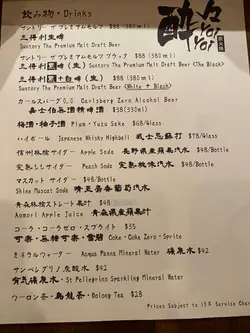 飲み物・Drinks
サントリー ザ プレミアムモルツ $88 (380ml)
三得利生啤
Suntory The Premium Malt Draft Beer
サントリー ザ プレミアムモルツ ブラック $88 (380ml)
三得利黑啤 (生) Suntory The Premium Malt Draft Beer (The Black)
三得利黑+白啤 (生) $88 (380ml)
Suntory The Premium Malt Draft Beer (White + Black)
カールスバーグ 0.0 Carlsberg Zero Alcohol Beer
嘉士伯無酒精啤酒 $58 (330ml)
梅酒・柚子酒 Plum・Yuzu Sake $68/Glass
ハイボール Japanese Whisky Highball 威士忌蘇打 $78/Glass
信州林檎サイダー Apple Soda 長野県産蘋果汽水 $48/Bottle
完熟ももサイダー Peach Soda 完熟桃味汽水 $48/Bottle
マスカット サイダー $48/Bottle
Shine Muscat Soda 晴王麝香葡萄汽水
青森林檎ストレート果汁 $48
Aomori Apple Juice 青森縣産蘋果汁
コーラ・コーラゼロ・スプライト $35
可樂・無糖可樂・雪碧 Coke・Coke Zero・Sprite
ミネラルウォーター Acqua Panna Mineral Water 礦泉水 $42
サンペレグリノ炭酸水 $42
有氣礦泉水・St Pellegrino Sparkling Mineral Water
ウーロン茶・烏龍茶・Oolong Tea $28
Prices Subject to 10% Service Char